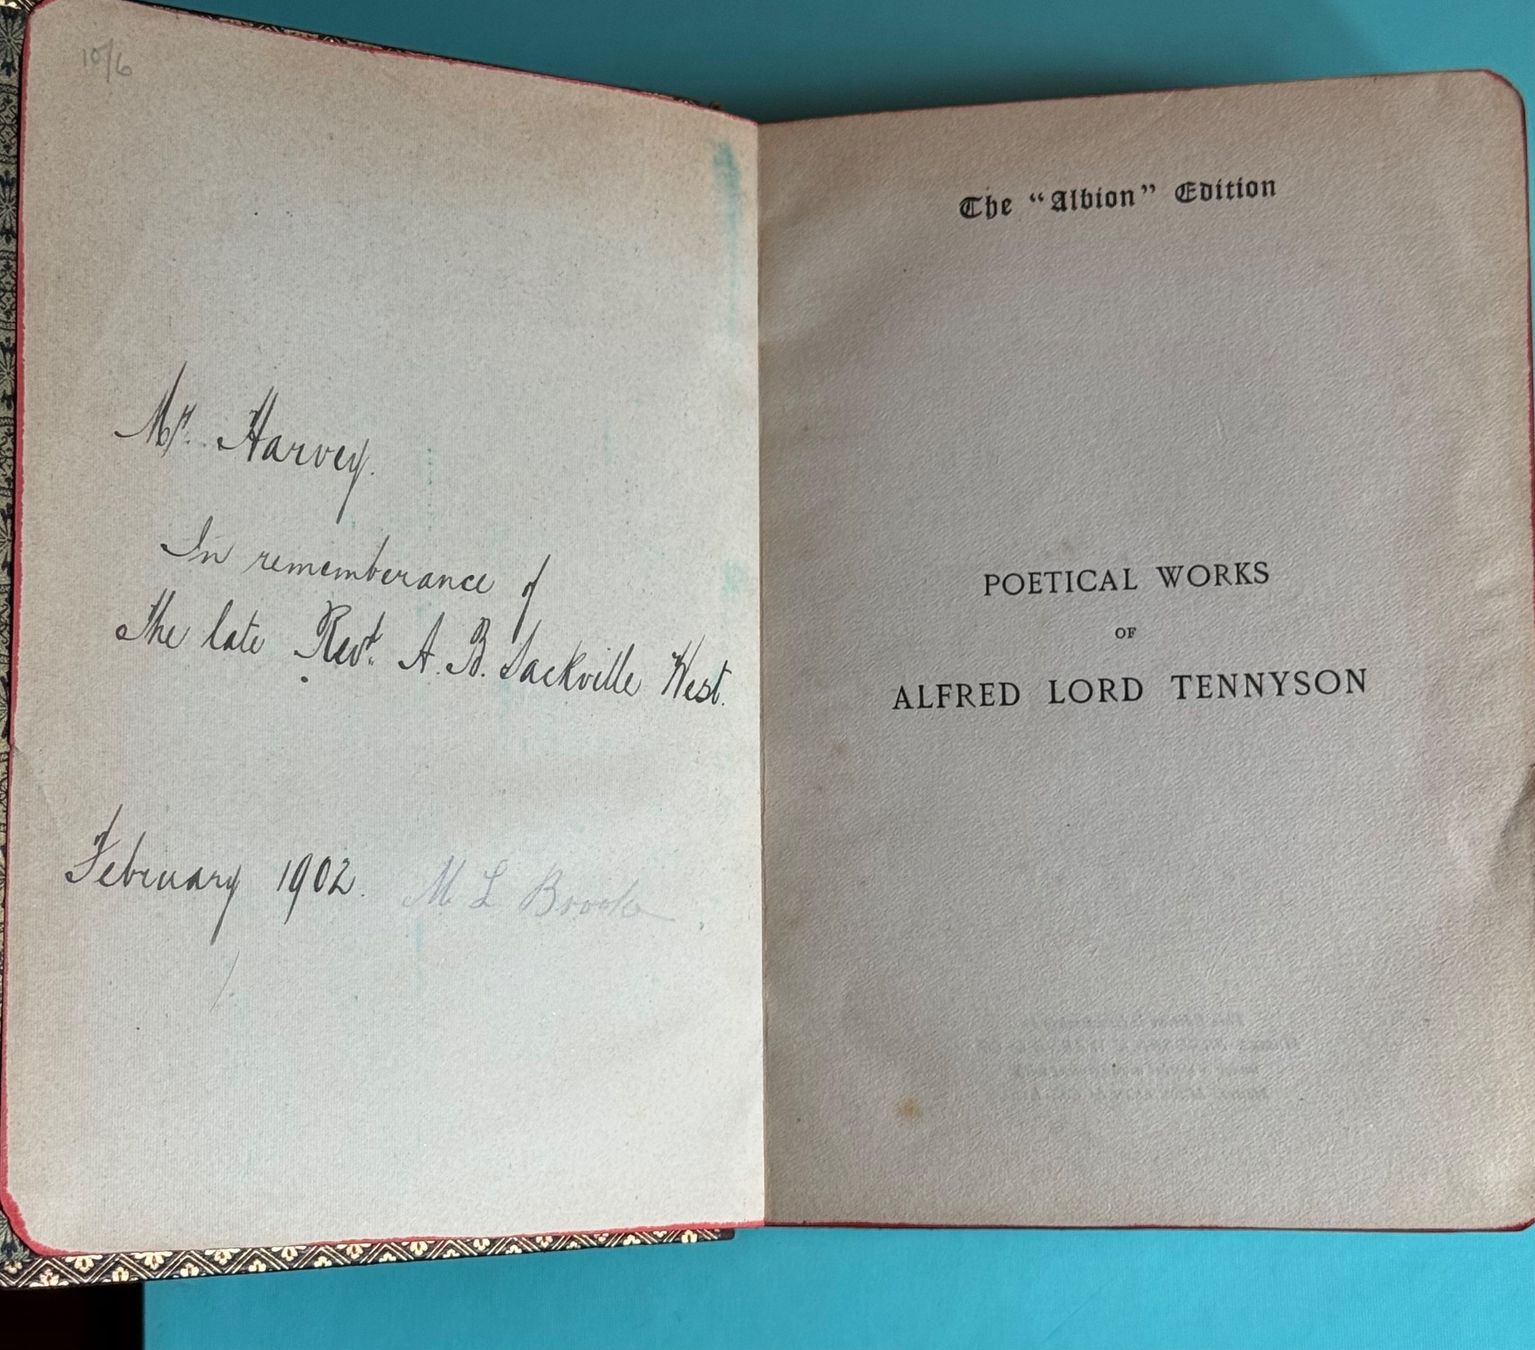 10/6
Mr. Harvey.
In rememberance of
the late Revd. A. B. Sackville West.
February 1902. M L Brooke
The "Albion" Edition
POETICAL WORKS
OF
ALFRED LORD TENNYSON